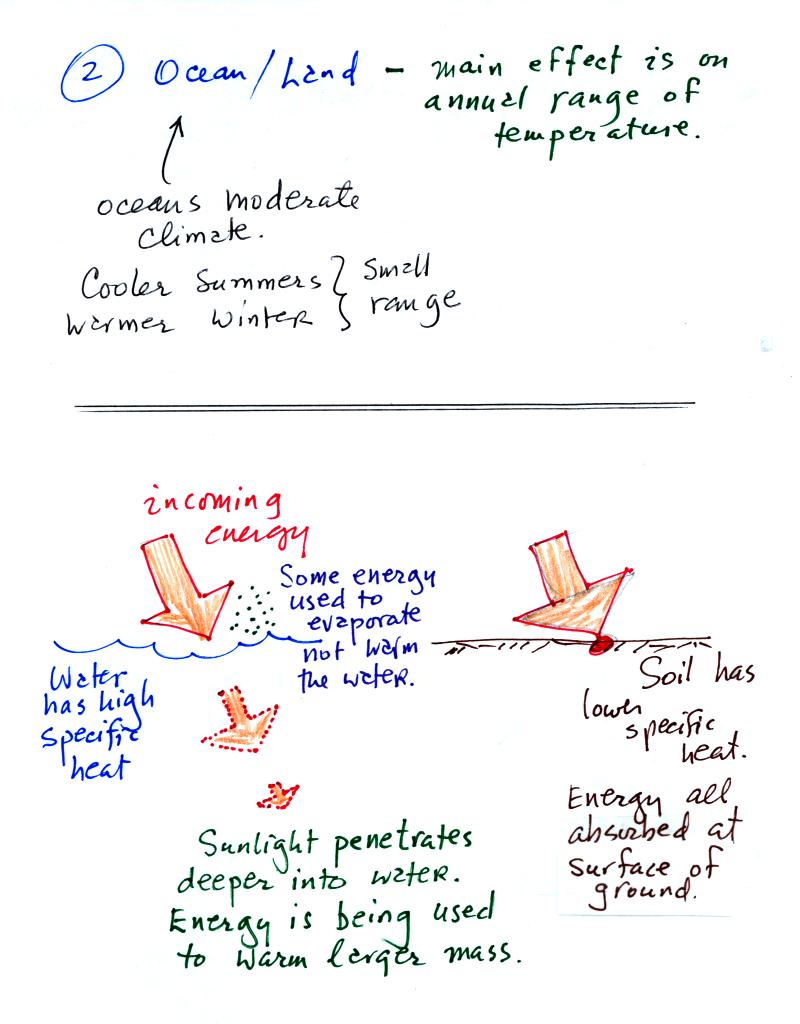 2 Ocean/Land - main effect is on
annual range of
temperature.
oceans moderate
climate.
Cooler Summers } small
warmer winter } range
incoming
energy
Some energy
used to
evaporate
not warm
the water.
Water
has high
specific
heat
Soil has
lower
specific
heat.
Energy all
absorbed at
surface of
ground.
Sunlight penetrates
deeper into water.
Energy is being used
to warm larger mass.